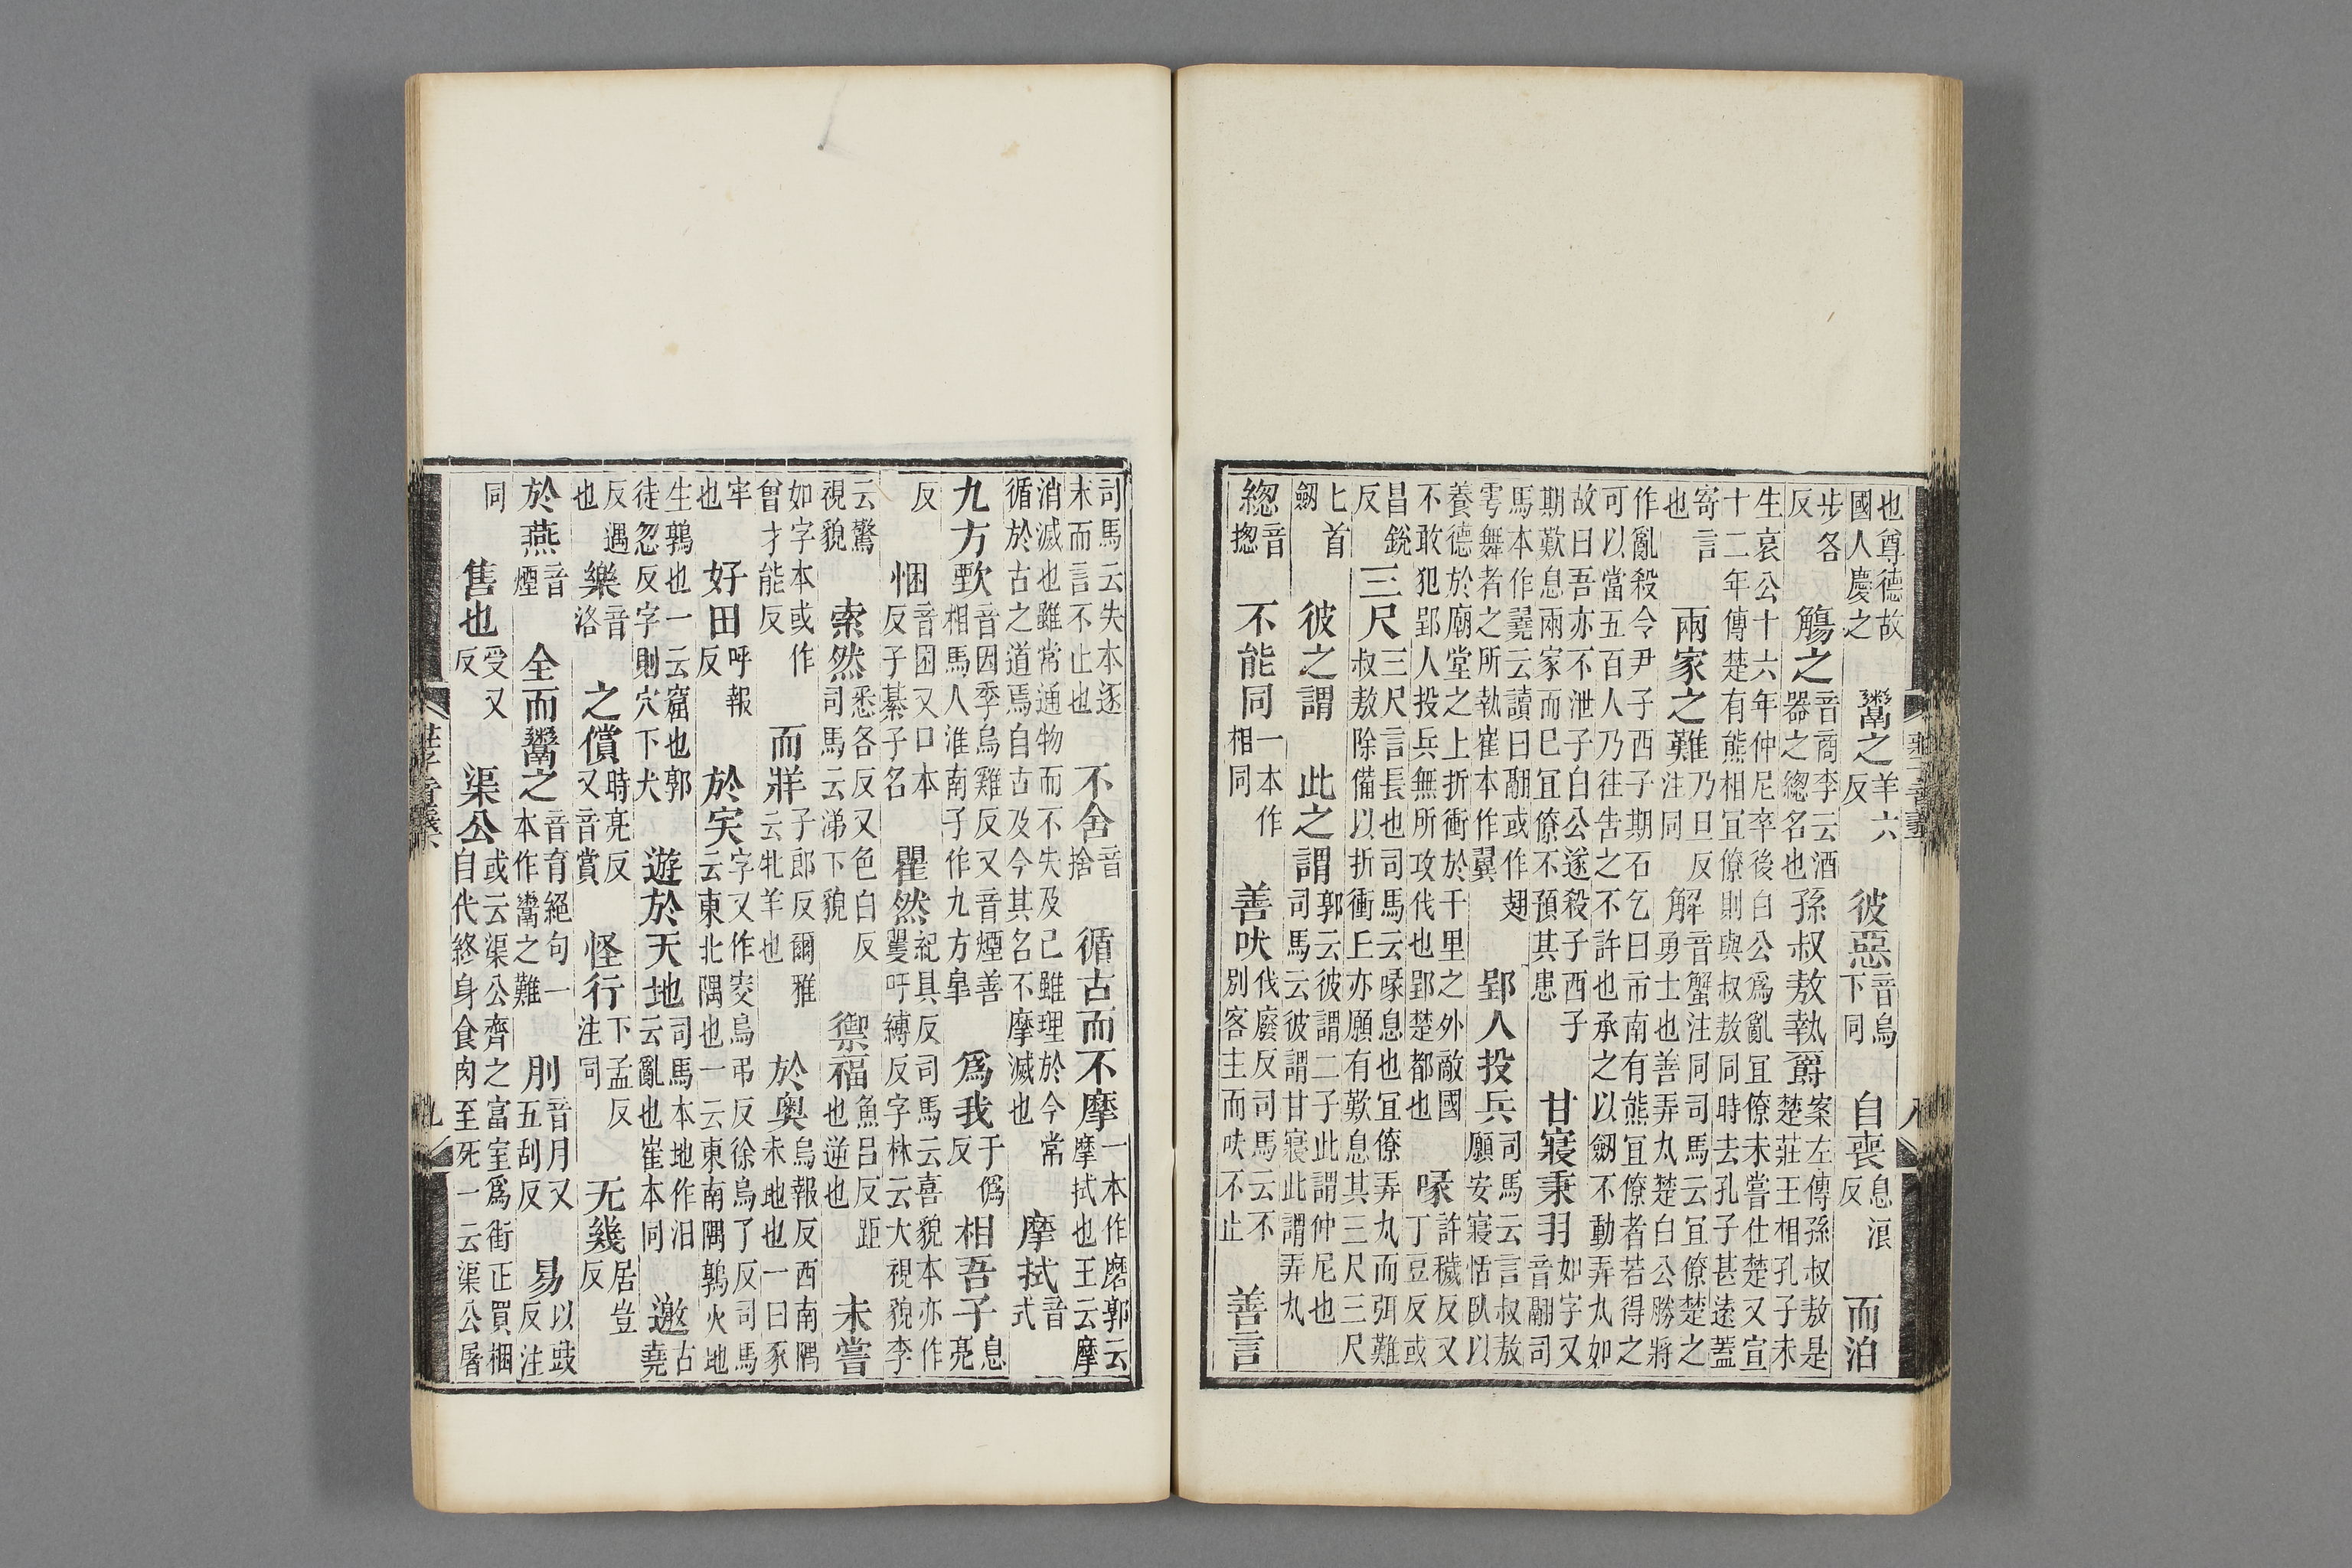 也尊德故國人慶之　鬻之羊六反　彼惡音烏下同　自喪息浪反　而泊
步各反　觴之音商李云酒器之總名也　孫叔敖執爵案左傳孫叔敖是楚莊王相孔子未
生哀公十六年仲尼卒後白公爲亂宜僚未嘗仕楚又宣十二年傳楚有熊相宜僚則與叔敖同時去孔子甚遠蓋
寄言也　兩家之難乃旦反注同　解音蟹注同司馬云宜僚楚之勇士也善弄丸楚白公勝將
作亂殺令尹子西子期石乞曰市南有熊宜僚者若得之可以當五百人乃往告之不許也承之以劔不動弄丸如
故曰吾亦不泄子白公遂殺子西子期歎息兩家而已宜僚不預其患　甘寢秉羽如字又音翿司
馬本作翹云讀曰翿或作翅雩舞者之所執崔本作翼　郢人投兵司馬云言叔敖願安寢恬臥以
養德於廟堂之上折衝於千里之外敵國不敢犯郢人投兵無所攻伐也郢楚都也　喙許穢反又丁豆反或
昌銳反　三尺三尺言長也司馬云喙息也宜僚弄丸而弭難叔敖除備以折衝丘亦願有歎息其三尺三尺
匕首劔　彼之謂　此之謂郭云彼謂二子此謂仲尼也司馬云彼謂甘寢此謂弄丸
緫音摠　不能同一本作相同　善吠伐廢反司馬云不別客主而吠不止　善言
莊子音義六　八
司馬云失本逐末而言不止也　不舍音捨　循古而不摩一本作磨郭云摩拭也王云摩
消滅也雖常通物而不失及己雖理於今常循於古之道焉自古及今其名不摩滅也　摩拭音式
九方歅音因季烏雞反又音煙善相馬人淮南子作九方皐　爲我于僞反　相吾子息亮
反　悃音困又口本反子綦子名　瞿然紀具反司馬云喜貌本亦作矍吁縛反字林云大視貌李
云驚視貌　索然悉各反又色白反司馬云涕下貌　禦福魚呂反距也逆也　未嘗
如字本或作曾才能反　而牂子郎反爾雅云牝羊也　於奧烏報反西南隅未地也一曰豕
牢也　好田呼報反　於宎字又作窔烏弔反徐烏了反司馬云東北隅也一云東南隅鶉火地
生鶉也一云窟也郭徒忽反字則穴下犬　遊於天地司馬本地作汨云亂也崔本同　邀古堯
反遇也　樂音洛　之償時亮反又音賞　怪行下孟反注同　无幾居豈反
於燕音煙　全而鬻之音育絕句一本作鬻之難　刖音月又五刮反　易以豉反注
同　售也受又反　渠公或云渠公齊之富室爲街正買梱自代終身食肉至死一云渠公屠
莊子音義六　九